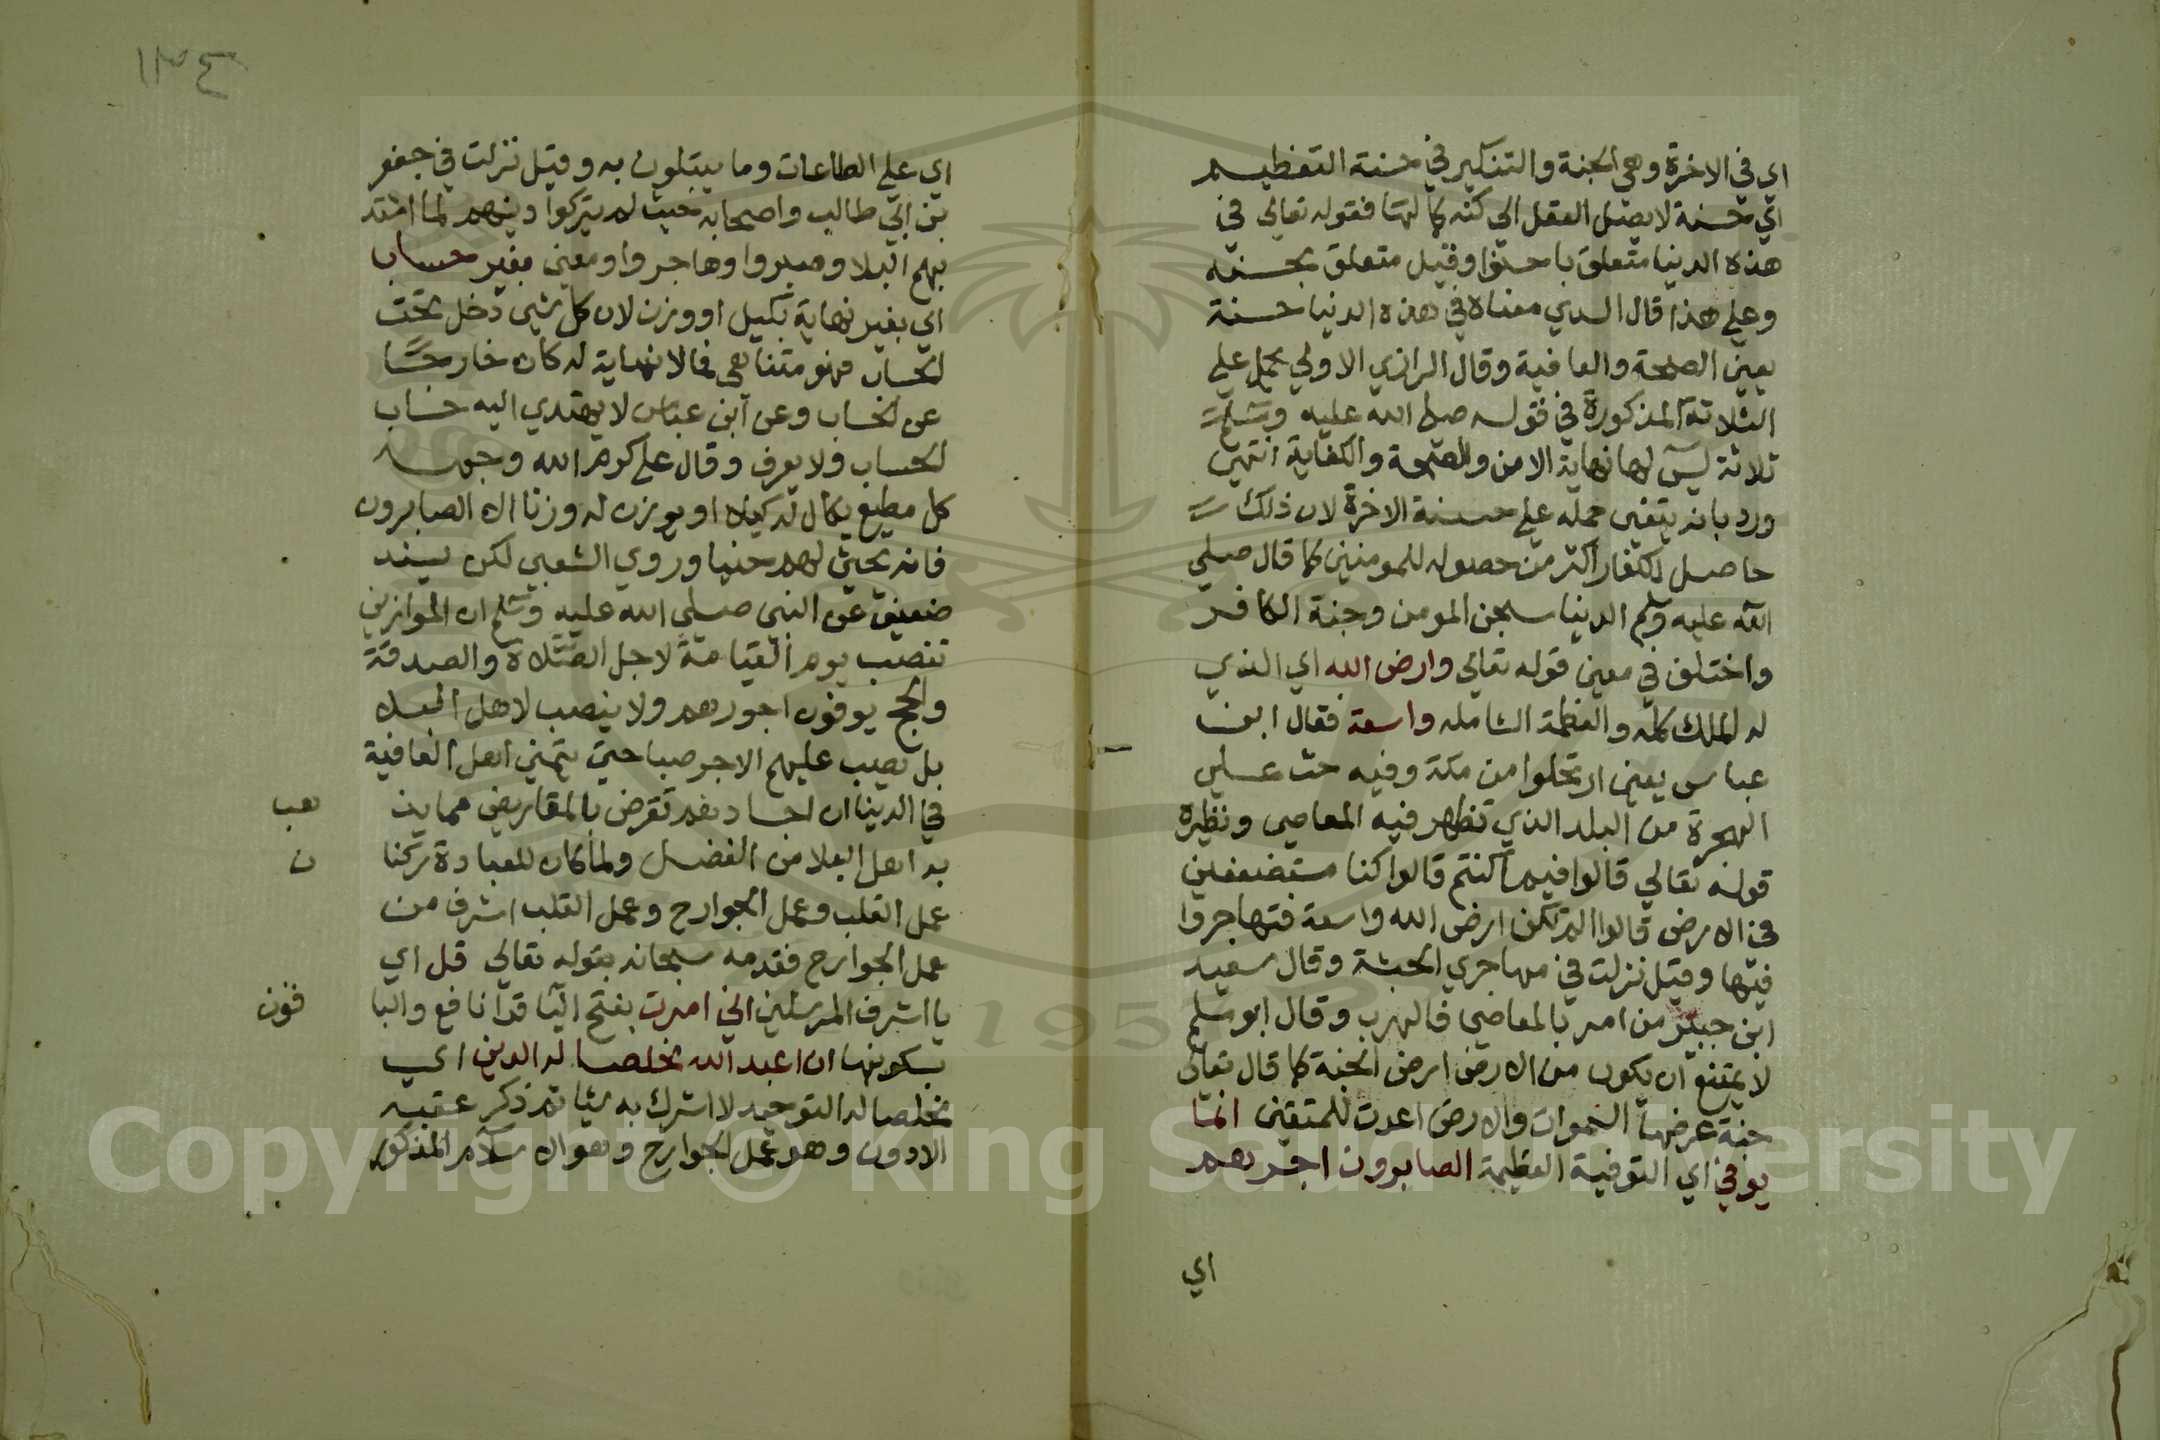 اي في الاخرة وهي الجنة والتنكير في حسنة التعظيم
اي حسنة لا يصل العقل الى كنه كمالها فقوله تعالى في
هذه الدنيا متعلق باحسنوا وقيل متعلق بحسنه
وعلى هذا قال السدي معناه في هذه الدنيا حسنة
يعني الصحة والعافية وقال الرازي الاولى يحمل على
الثلاثة المذكورة في قوله صلى الله عليه وسلم
ثلاثة ليس لها نهاية الامن والصحة والكفاية انتهى
ورد بانه يتعين حمله على حسنة الاخرة لان ذلك
حاصل للكفار اكثر من حصوله للمومنين كما قال صلى
الله عليه وسلم الدنيا سجن المومن وجنة الكافر
واختلف في معنى قوله تعالى وارض الله اي الذي
له الملك كله والعظمة الشامله واسعة فقال ابن
عباس يعني ارتحلوا من مكة وفيه حث على
الهجرة من البلد الذي تظهر فيه المعاصي ونظيره
قوله تعالى قالوا فيم كنتم قالوا كنا مستضعفين
في الارض قالوا الم تكن ارض الله واسعة فتهاجروا
فيها وقيل نزلت في مهاجري الحبشة وقال سعيد
ابن جبير من امر بالمعاصي فالهرب وقال ابو مسلم
لا يمتنع ان يكون من الارض ارض الجنة كما قال تعالى
جنة عرضها السموات والارض اعدت للمتقين انما
يوفى اي التوفية العظيمة الصابرون اجرهم
اي
١٣٤
اي على الطاعات وما يبتلون به وقيل نزلت في جعفر
بن ابي طالب واصحابه حيث لم يتركوا دينهم لما اشتد
بهم البلا وصبروا وهاجروا ومعنى بغير حساب
اي بغير نهاية بكيل او وزن لان كل شي دخل تحت
الحساب فهو متناهي فما لا نهاية له كان خارجا
عن الحساب وعن ابن عباس لا يهتدي اليه حساب
الحساب ولا يعرف وقال علي كرم الله وجهه
كل مطيع يكال له كيلا او يوزن له وزنا الا الصابرون
فانه يحثى لهم حثيا وروي الشعبي لكن بسند
ضعيف عن النبي صلى الله عليه وسلم ان الموازين
تنصب يوم القيامة لاجل الصلاة والصدقة
والحج يوفون اجورهم ولا ينصب لاهل البلا
بل يصب عليهم الاجر صبا حتى يتمنى اهل العافية
في الدنيا ان اجسادهم تقرض بالمقاريض مما يذ
هب
به اهل البلا من الفضل ولما كان للعبادة ركنا
ن
عمل القلب وعمل الجوارح وعمل القلب اشرف من
عمل الجوارح فقدمه سبحانه بقوله تعالى قل اي
يا اشرف المرسلين اني امرت بفتح اليا قرا نافع والبا
قون
بسكونها ان اعبد الله مخلصا له الدين اي
مخلصا له التوحيد لا اشرك به شيا ثم ذكر عقبه
الادون وهو عمل الجوارح وهو الاسلام المذكور
Copyright © King Saud University
1957